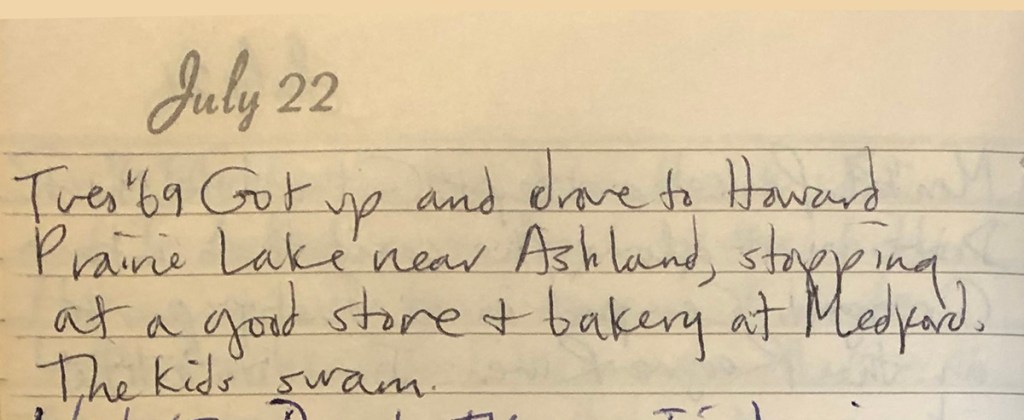 July 22
Tues '69 Got up and drove to Howard
Prairie Lake near Ashland, stopping
at a good store + bakery at Medford.
The kids swam.